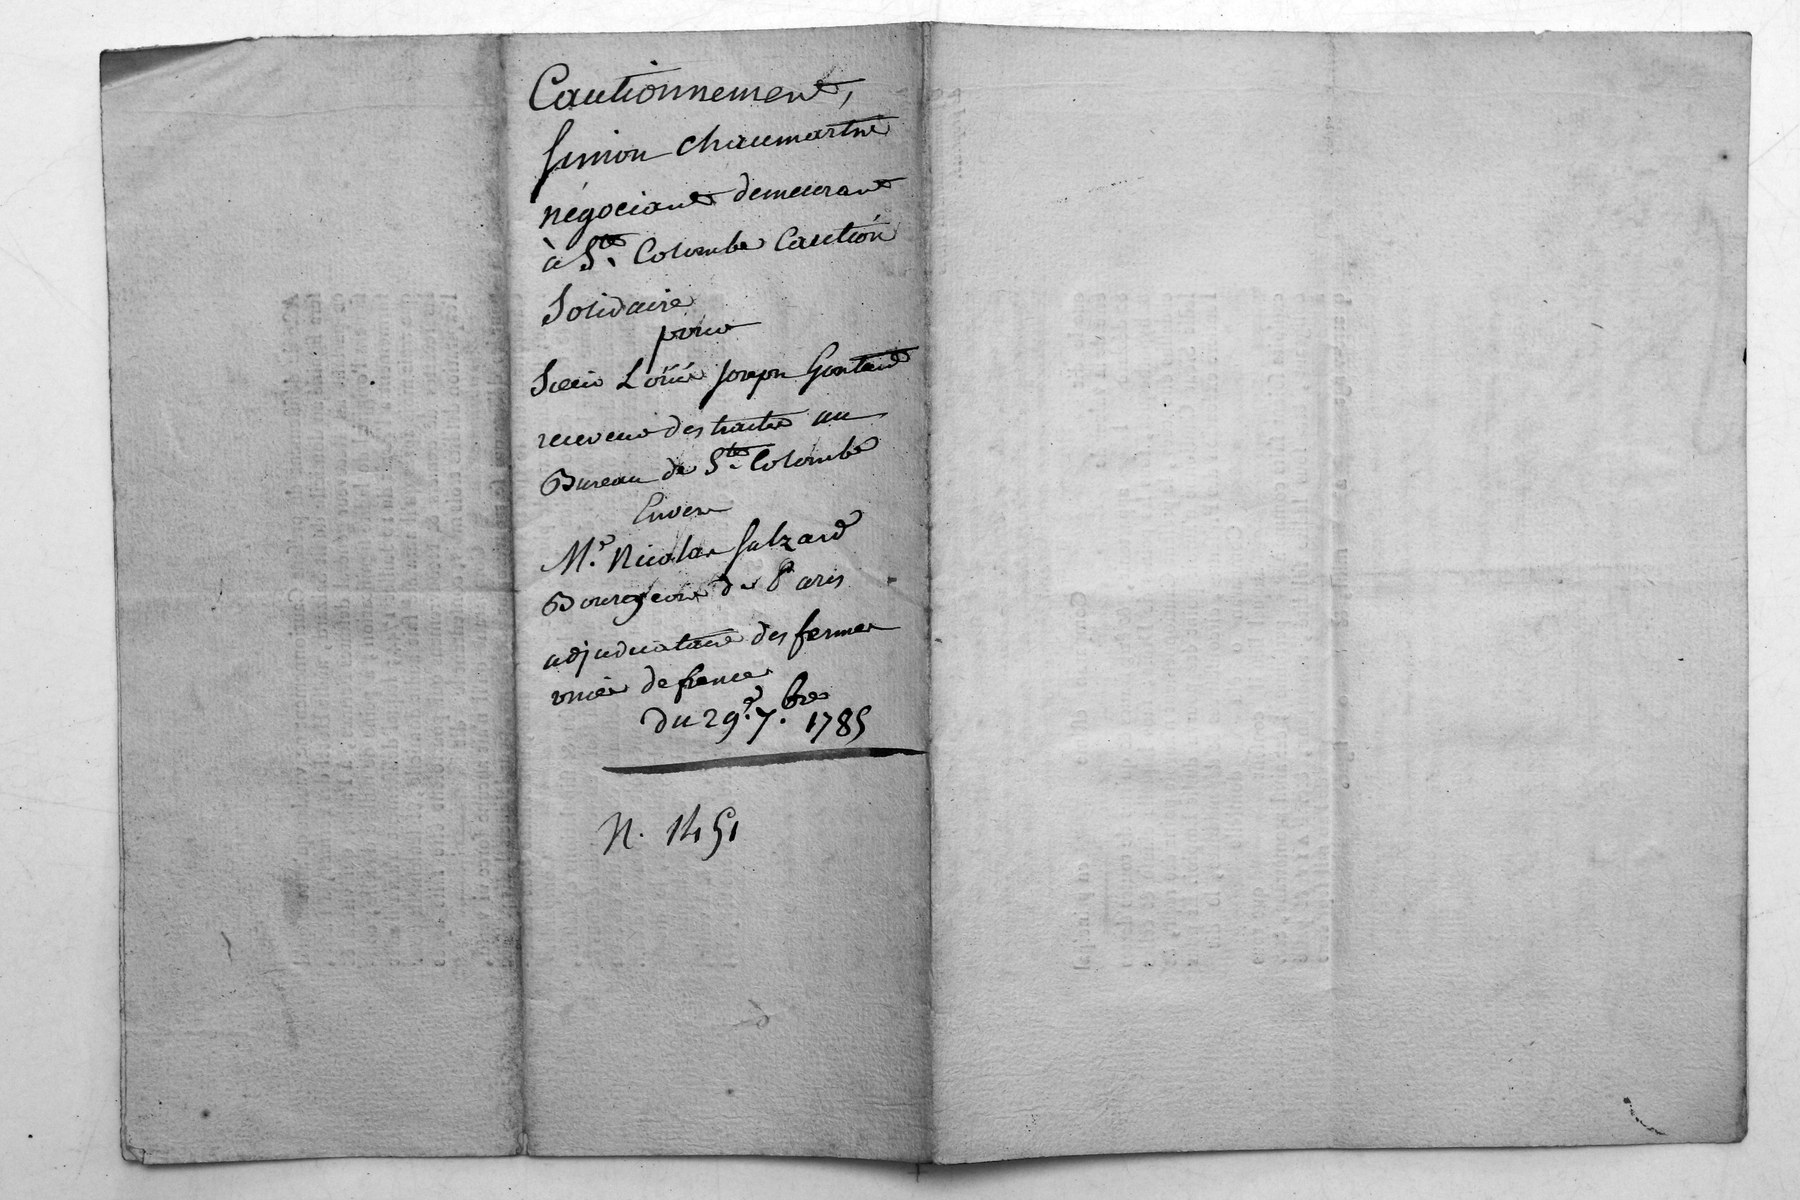 Cautionnement,
Simon Chaumartin
négociant demeurant
à S.te Colombe Caution
Solidaire
pour
Sieur Loüis Joseph Gontard
receveur des traites au
Bureau de S.te Colombe
Envers
M.r Nicolas Salzard
Bourgeois de Paris
adjudicataire des fermes
unies de france
du 29.e 7.bre 1785
N. 1451